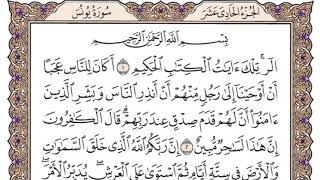 سُورَةُ يُونُسَ
الجُزْءُ الحَادِي عَشَرَ
بِسْمِ اللَّهِ الرَّحْمَٰنِ الرَّحِيمِ
الٓر ۚ تِلْكَ ءَايَٰتُ ٱلْكِتَٰبِ ٱلْحَكِيمِ ١ أَكَانَ لِلنَّاسِ عَجَبًا
أَنْ أَوْحَيْنَآ إِلَىٰ رَجُلٍ مِّنْهُمْ أَنْ أَنذِرِ ٱلنَّاسَ وَبَشِّرِ ٱلَّذِينَ
ءَامَنُوٓا۟ أَنَّ لَهُمْ قَدَمَ صِدْقٍ عِندَ رَبِّهِمْ ۗ قَالَ ٱلْكَٰفِرُونَ
إِنَّ هَٰذَا لَسَٰحِرٌ مُّبِينٌ ٢ إِنَّ رَبَّكُمُ ٱللَّهُ ٱلَّذِى خَلَقَ ٱلسَّمَٰوَٰتِ
وَٱلْأَرْضَ فِى سِتَّةِ أَيَّامٍ ثُمَّ ٱسْتَوَىٰ عَلَى ٱلْعَرْشِ ۖ يُدَبِّرُ ٱلْأَمْرَ ۖ